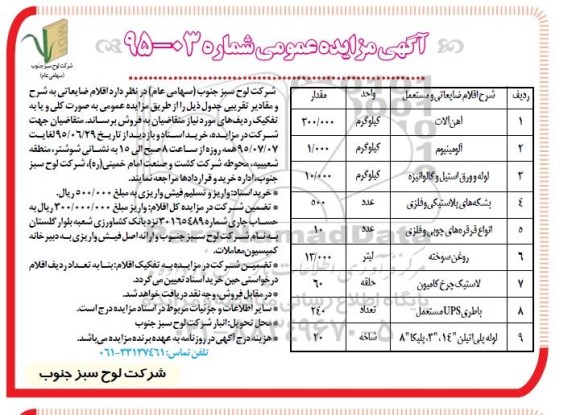 شرکت لوح سبز جنوب
(سهامی عام)
آگهی مزایده عمومی شماره ۰۳-۹۵
شرکت لوح سبز جنوب (سهامی عام) در نظر دارد اقلام ضایعاتی به شرح
و مقادیر تقریبی جدول ذیل را از طریق مزایده عمومی به صورت کلی و یا به
تفکیک ردیف های مورد نیاز متقاضیان به فروش برساند. متقاضیان جهت
شرکت در مزایده، خرید اسناد و بازدید از تاریخ ۹۵/۰۶/۲۹ لغایت
۹۵/۰۷/۰۷ همه روزه از ساعت ۸ صبح الی ۱۵ به نشانی شوشتر، منطقه
شعیبیه، محوطه شرکت کشت و صنعت امام خمینی(ره)، شرکت لوح سبز
جنوب، اداره خرید و قراردادها مراجعه نمایند.
* خرید اسناد: واریز و تسلیم فیش واریزی به مبلغ ۵۰۰/۰۰۰ ریال.
* تضمین شرکت در مزایده کل اقلام: واریز مبلغ ۳۰۰/۰۰۰/۰۰۰ ریال به
حساب جاری شماره ۳۰۱۶۵۴۸۹ نزد بانک کشاورزی شعبه بلوار گلستان
به نام شرکت لوح سبز جنوب و ارائه اصل فیش واریزی به دبیرخانه
کمیسیون معاملات.
* تضمین شرکت در مزایده به تفکیک اقلام: بنا به تعداد ردیف اقلام
درخواستی حین خرید اسناد تعیین می گردد.
* در مقابل فروش، وجه نقد دریافت خواهد شد.
* سایر اطلاعات و جزئیات مربوط در اسناد مزایده درج است.
* محل تحویل: انبار شرکت لوح سبز جنوب
* هزینه درج آگهی در روزنامه به عهده برنده مزایده می باشد.
تلفن تماس: ۳۳۱۳۷۴۶۱-۰۶۱
شرکت لوح سبز جنوب
ردیف شرح اقلام ضایعاتی و مستعمل واحد مقدار
۱ آهن آلات کیلوگرم ۳۰۰/۰۰۰
۲ آلومینیوم کیلوگرم ۱/۰۰۰
۳ لوله و ورق استیل و گالوانیزه کیلوگرم ۱۰/۰۰۰
۴ بشکه های پلاستیکی و فلزی عدد ۵۰۰
۵ انواع قرقره های چوبی و فلزی عدد ۱۰
۶ روغن سوخته لیتر ۱۲/۰۰۰
۷ لاستیک چرخ کامیون حلقه ۶۰
۸ باطری UPS مستعمل تعداد ۲۴۰
۹ لوله پلی اتیلن "۱۴، "۳، پلیکا "۸ شاخه ۲۰